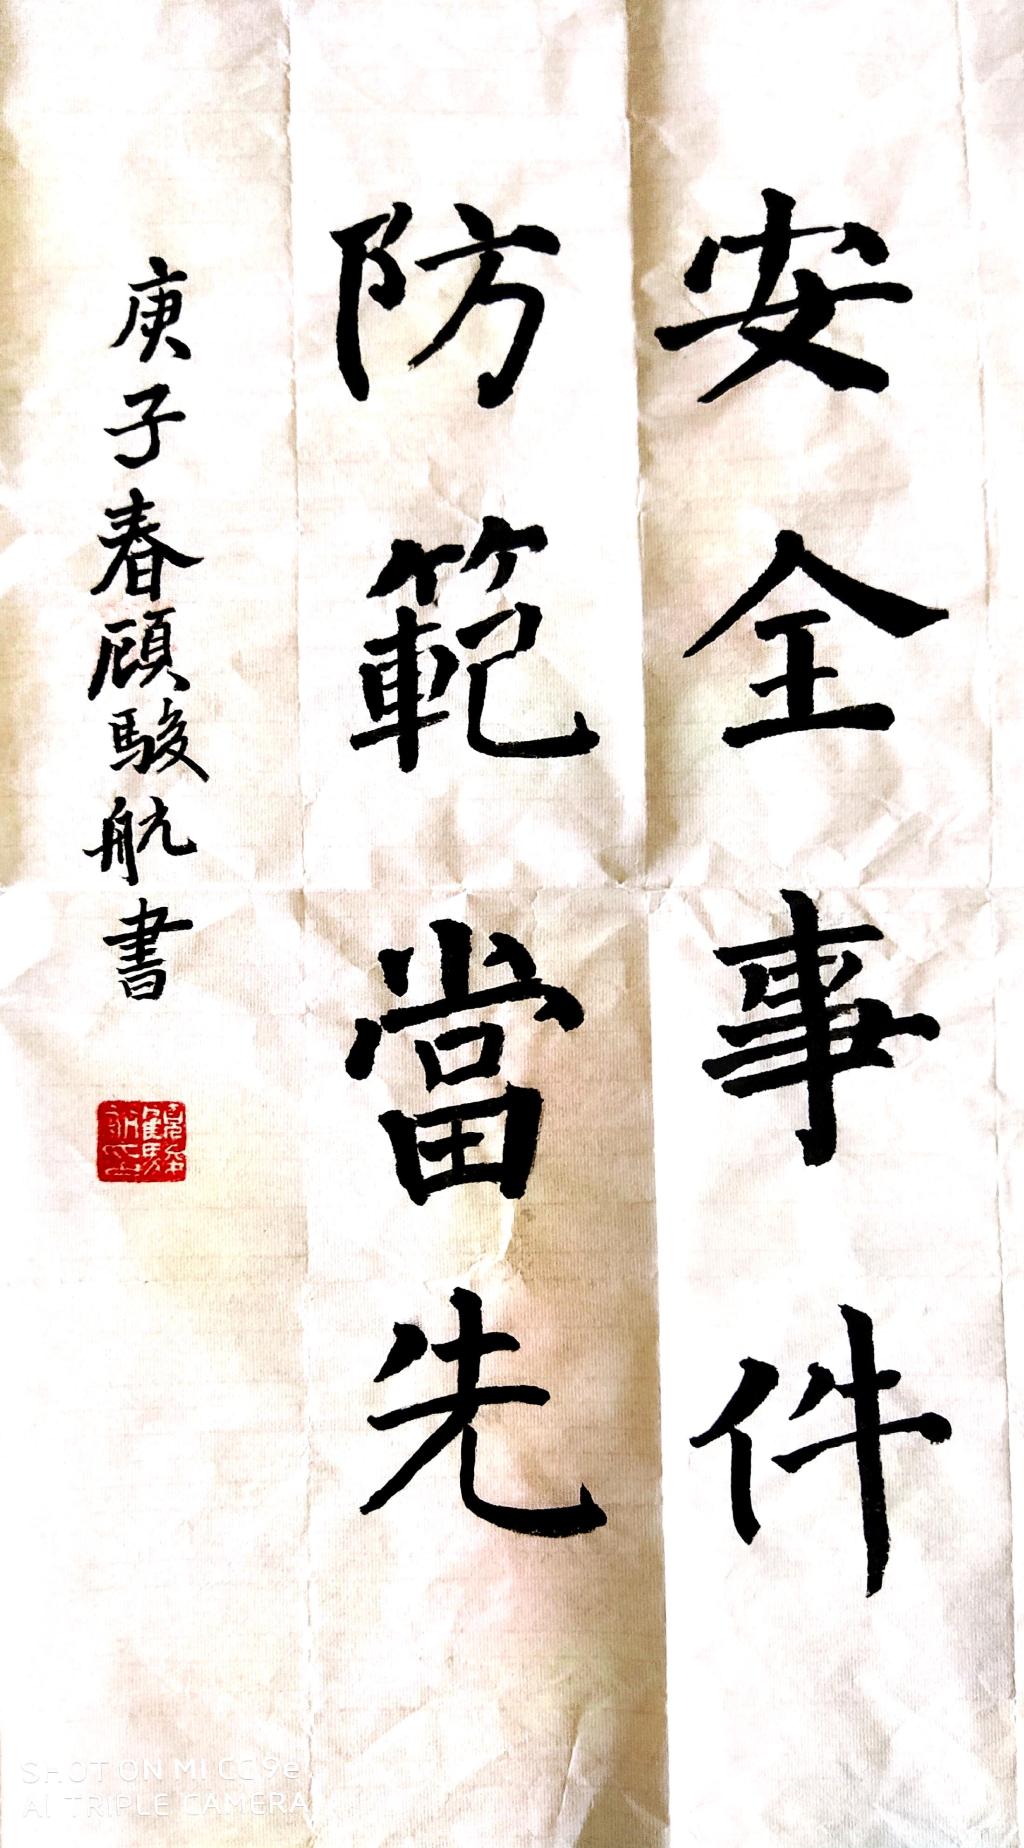 安全事件
防範當先
庚子春顧駿航書
SHOT ON MI CC9e
AI TRIPLE CAMERA